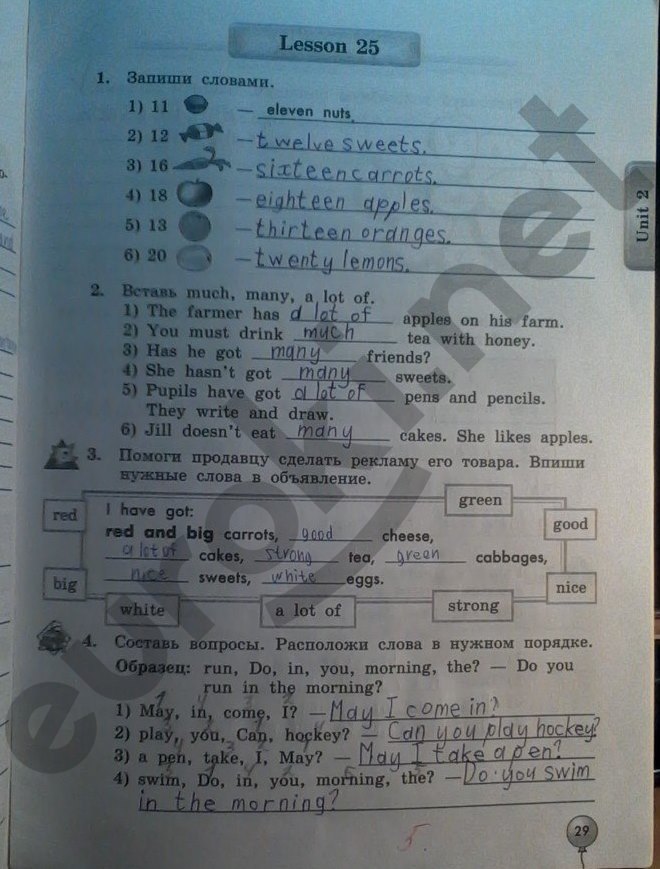 Lesson 25
1. Запиши словами.
1) 11 — eleven nuts.
2) 12 — twelve sweets.
3) 16 — sixteen carrots.
4) 18 — eighteen apples.
5) 13 — thirteen oranges.
6) 20 — twenty lemons.
Unit 2
2. Вставь much, many, a lot of.
1) The farmer has a lot of apples on his farm.
2) You must drink much tea with honey.
3) Has he got many friends?
4) She hasn't got many sweets.
5) Pupils have got a lot of pens and pencils.
They write and draw.
6) Jill doesn't eat many cakes. She likes apples.
3. Помоги продавцу сделать рекламу его товара. Впиши
нужные слова в объявление.
red
green
good
big
nice
white
a lot of
strong
I have got:
red and big carrots, good cheese,
a lot of cakes, strong tea, green cabbages,
nice sweets, white eggs.
4. Составь вопросы. Расположи слова в нужном порядке.
Образец: run, Do, in, you, morning, the? — Do you
run in the morning?
1) May, in, come, I? — May I come in?
2) play, you, Can, hockey? — Can you play hockey?
3) a pen, take, I, May? — May I take a pen?
4) swim, Do, in, you, morning, the? — Do you swim
in the morning?
5.
29
euroki.net